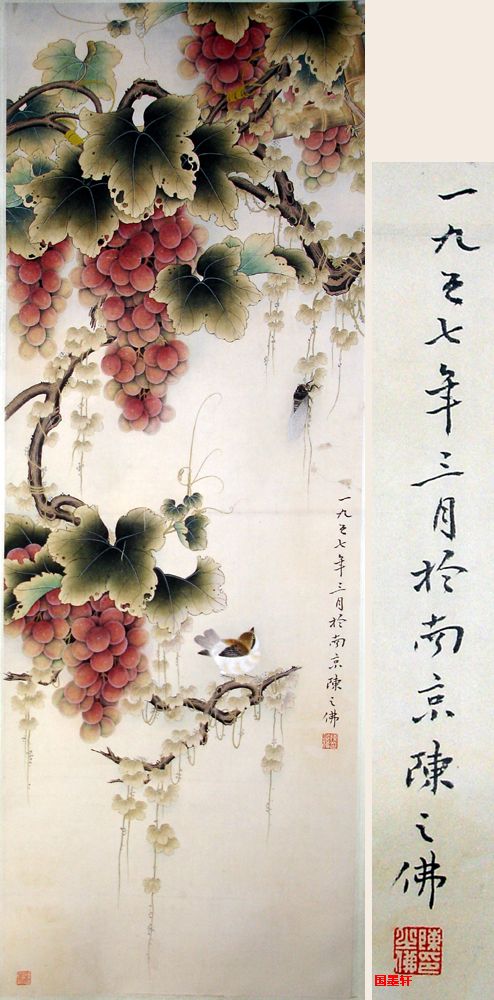 一九五七年三月於南京陳之佛
一九五七年三月於南京陳之佛
陳之佛印
国墨轩